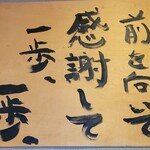 前を向き
感謝して
一歩、
一歩、